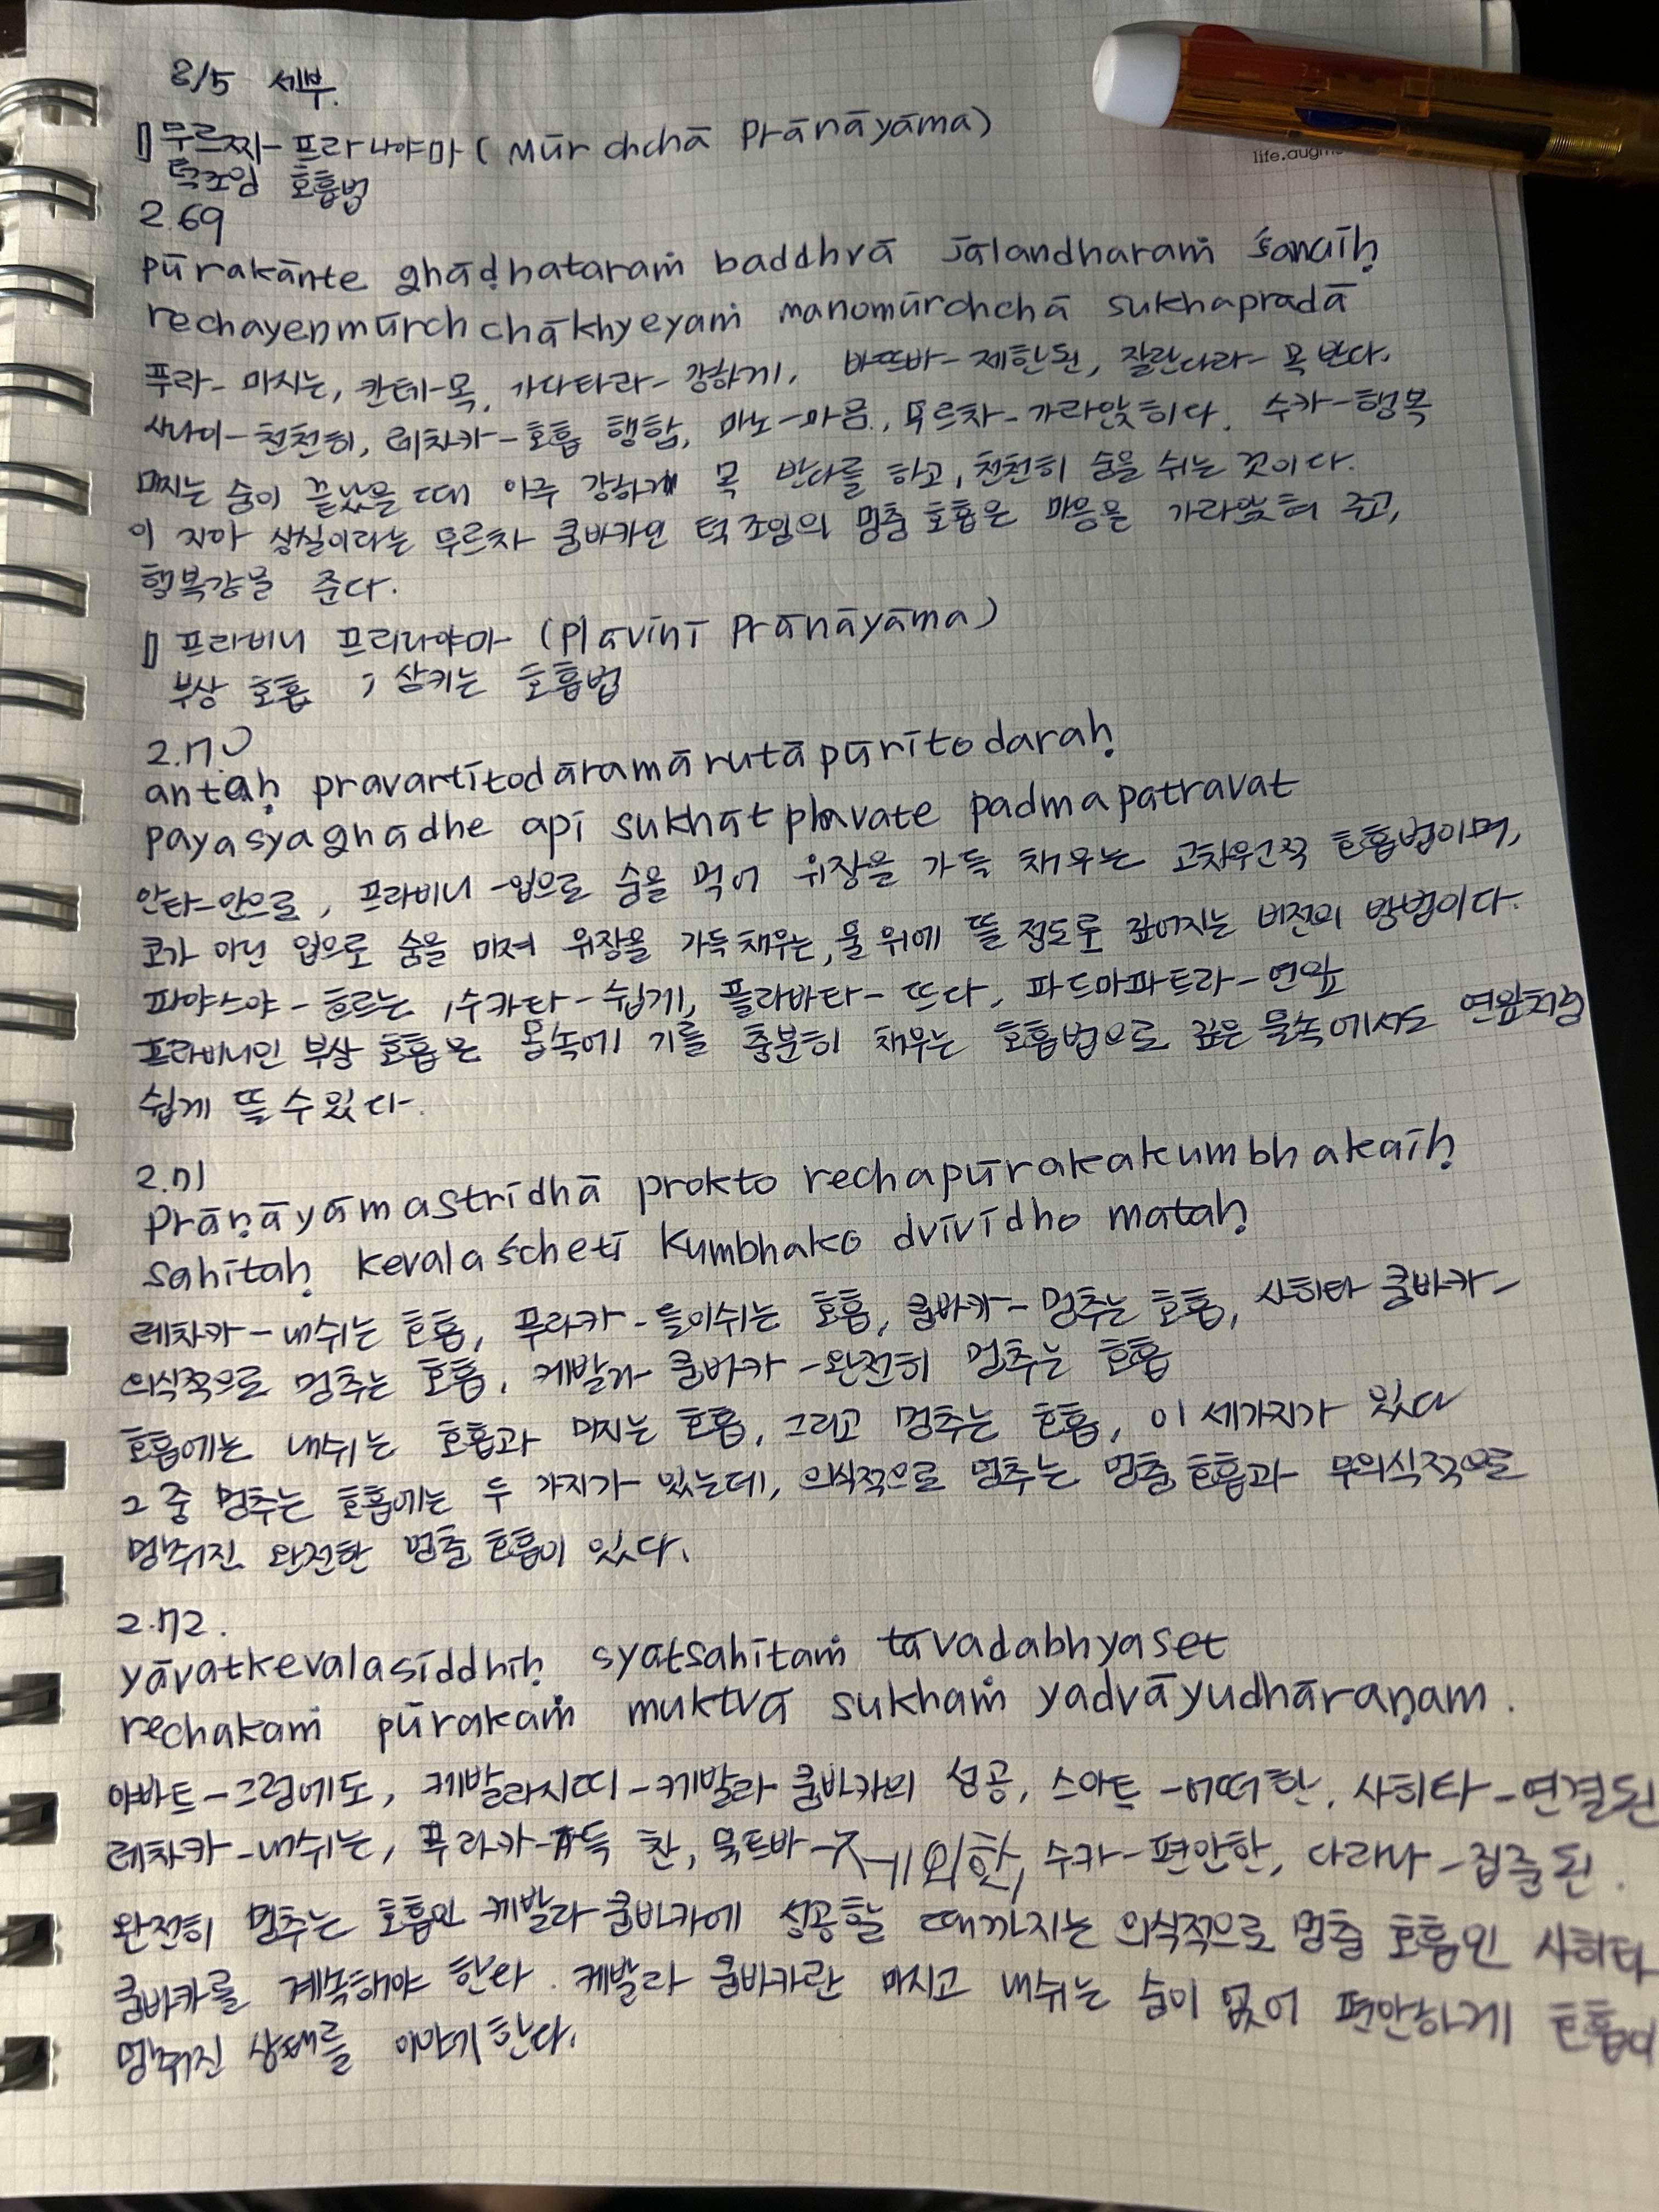 8/5 세부.
▯ 무르짜-프라나야마 (Mūrchchā Prānāyāma)
life.augm
턱조임 호흡법
2.69
pūrakānte ghāḍhataraṁ baddhvā jālandharaṁ śanaiḥ
rechayenmūrchchākhyeyaṁ manomūrchchā sukhapradā
푸라-마시는, 칸테-목, 가다타라-강하게, 바뜨바-제한된, 잘란다라-목 반다.
사나이-천천히, 레차카-호흡 행함, 마노-마음, 무르차-가라앉히다. 수카-행복
마시는 숨이 끝났을 때 아주 강하게 목 반다를 하고, 천천히 숨을 쉬는 것이다.
이 자아 상실이라는 무르차 쿰바카인 턱 조임의 멈춤 호흡은 마음을 가라앉혀 주고,
행복감을 준다.
▯ 프라비니 프라나야마 (Plāvinī Prānāyāma)
부상 호흡 ; 삼키는 호흡법
2.70
antaḥ pravartitodāramārutāpūritodaraḥ
payasyaghādhe api sukhātplavate padmapatravat
안타-안으로, 프라비니-입으로 숨을 먹어 위장을 가득 채우는 고차원적 호흡법이며,
코가 아닌 입으로 숨을 마셔 위장을 가득채우는, 물 위에 뜰 정도로 깊어지는 버전의 방법이다.
파야스야-흐르는, 수카타-쉽게, 플라바타-뜨다, 파드마파트라-연잎
프라비니인 부상 호흡은 몸속에 기를 충분히 채우는 호흡법으로 깊은 물속에서도 연잎처럼
쉽게 뜰 수 있다.
2.71
Prāṇāyāmastridhā prokto rechapūrakakumbhakaiḥ
sahitaḥ kevalaścheti kumbhako dvividho mataḥ
레차카-내쉬는 호흡, 푸라카-들이쉬는 호흡, 쿰바카-멈추는 호흡, 사히타 쿰바카-
의식적으로 멈추는 호흡, 케발라 쿰바카-완전히 멈추는 호흡
호흡에는 내쉬는 호흡과 마시는 호흡, 그리고 멈추는 호흡, 이 세가지가 있다
그 중 멈추는 호흡에는 두 가지가 있는데, 의식적으로 멈추는 멈춤 호흡과 무의식적으로
멈춰진 완전한 멈춤 호흡이 있다.
2.72.
yāvatkevalasiddhiḥ syātsahitaṁ tāvadabhyaset
rechakaṁ pūrakaṁ muktvā sukhaṁ yadvāyudhāraṇam.
야바트-그럼에도, 케발라시띠-케발라 쿰바카의 성공, 스야트-어떠한, 사히타-연결된
레차카-내쉬는, 푸라카-가득 찬, 묵트바-제외한, 수카-편안한, 다라나-집중된.
완전히 멈추는 호흡인 케발라 쿰바카에 성공할 때까지는 의식적으로 멈춤 호흡인 사히타
쿰바카를 계속해야 한다. 케발라 쿰바카란 마시고 내쉬는 숨이 없어 편안하게 호흡이
멈춰진 상태를 이야기한다.